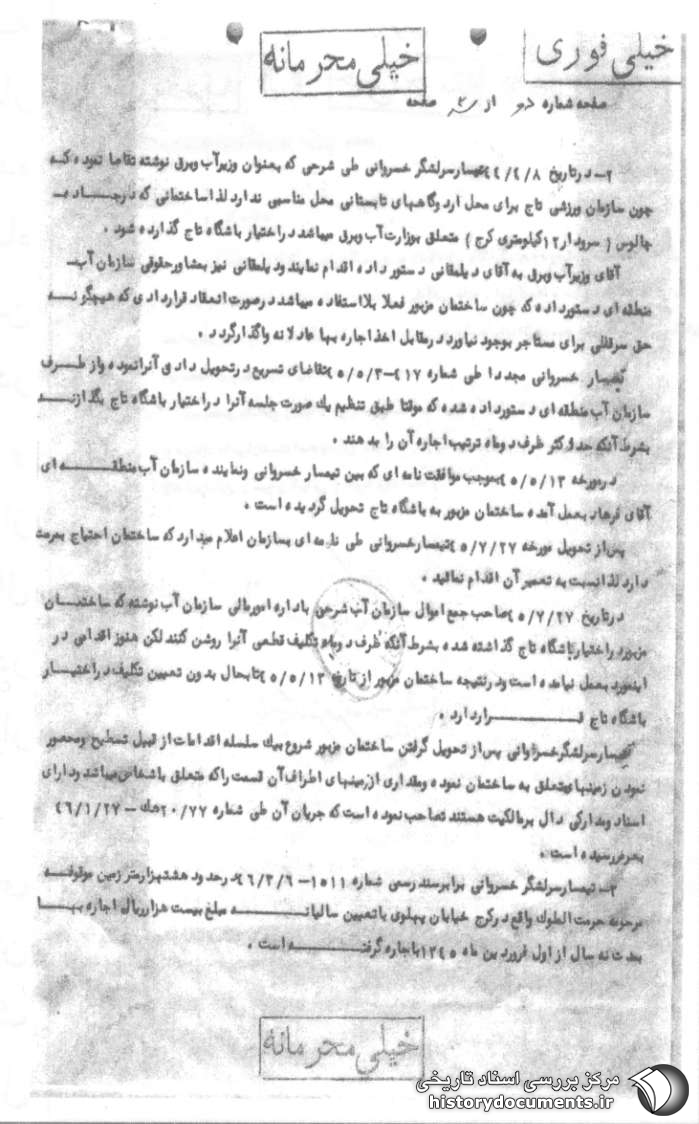 خیلی فوری
خیلی محرمانه
صفحه شماره دو از صفحه
۲- در تاریخ ۴۴/۴/۸ تیمسار سرلشگر خسروانی طی شرحی که بعنوان وزیر آب و برق نوشته تقاضا نموده که
چون سازمان ورزشی تاج برای محل اردوگاههای تابستانی محل مناسبی ندارد لذا ساختمانی که در جاده
چالوس ( سرودار ۱۲ کیلومتری کرج ) متعلق بوزارت آب و برق میباشد در اختیار باشگاه تاج گذارده شود .
آقای وزیر آب و برق به آقای دیلمقانی دستور داده اقدام نمایند و دیلمقانی نیز بمشاور حقوقی سازمان آب
منطقه ای دستور داده که چون ساختمان مزبور فعلا بلا استفاده میباشد در صورت انعقاد قراردادی که هیچگونه
حق سرقفلی برای مستاجر بوجود نیاورد در مقابل اخذ اجاره بها عادلانه واگذار گردد .
تیمسار خسروانی مجددا طی شماره ۴۱۷-۴۵/۵/۳ تقاضای تسریع در تحویل دادن آنرا نموده و از طرف
سازمان آب منطقه ای دستور داده شده که موقتا طبق تنظیم یک صورت جلسه آنرا در اختیار باشگاه تاج بگذارند
بشرط آنکه حداکثر ظرف دو ماه ترتیب اجاره آن را بدهند .
در مورخه ۴۵/۵/۱۳ بموجب موافقت نامه ای که بین تیمسار خسروانی و نماینده سازمان آب منطقه ای
آقای فرهاد بعمل آمده ساختمان مزبور به باشگاه تاج تحویل گردیده است .
پس از تحویل مورخه ۴۵/۷/۲۷ تیمسار خسروانی طی نامه ای بسازمان اعلام میدارد که ساختمان احتیاج بمرمت
دارد لذا نسبت به تعمیر آن اقدام نمائید .
در تاریخ ۴۵/۷/۲۷ صاحب جمع اموال سازمان آب شرحی باداره امور مالی سازمان آب نوشته که ساختمان
مزبور در اختیار باشگاه تاج گذاشته شده بشرط آنکه ظرف دو ماه تکلیف قطعی آنرا روشن کنند لکن هنوز اقدامی در
اینمورد بعمل نیامده است و در نتیجه ساختمان مزبور از تاریخ ۴۵/۵/۱۳ تا بحال بدون تعیین تکلیف در اختیار
باشگاه تاج قرار دارد .
تیمسار سرلشگر خسروانی پس از تحویل گرفتن ساختمان مزبور شروع بیک سلسله اقدامات از قبیل تسطیح و محصور
نمودن زمینهای متعلق به ساختمان نموده و مقداری از زمینهای اطراف آن قسمت را که متعلق باشخاص میباشد و دارای
اسناد و مدارکی دال بر مالکیت هستند تصاحب نموده است که جریان آن طی شماره ۲۰/۷۷ هک - ۴۶/۱/۲۷
بعرض رسیده است .
۳- تیمسار سرلشگر خسروانی برابر سند رسمی شماره ۱۵۱۱- ۴۶/۳/۶ در حدود هشت هزار متر زمین موقوفه
مرحومه حرمت الملوک واقع در کرج خیابان پهلوی با تعیین سالیانه مبلغ بیست هزار ریال اجاره بها
بمدت نه سال از اول فروردین ماه ۱۳۴۵ باجاره گرفته است .
خیلی محرمانه
مرکز بررسی اسناد تاریخی
historydocuments.ir